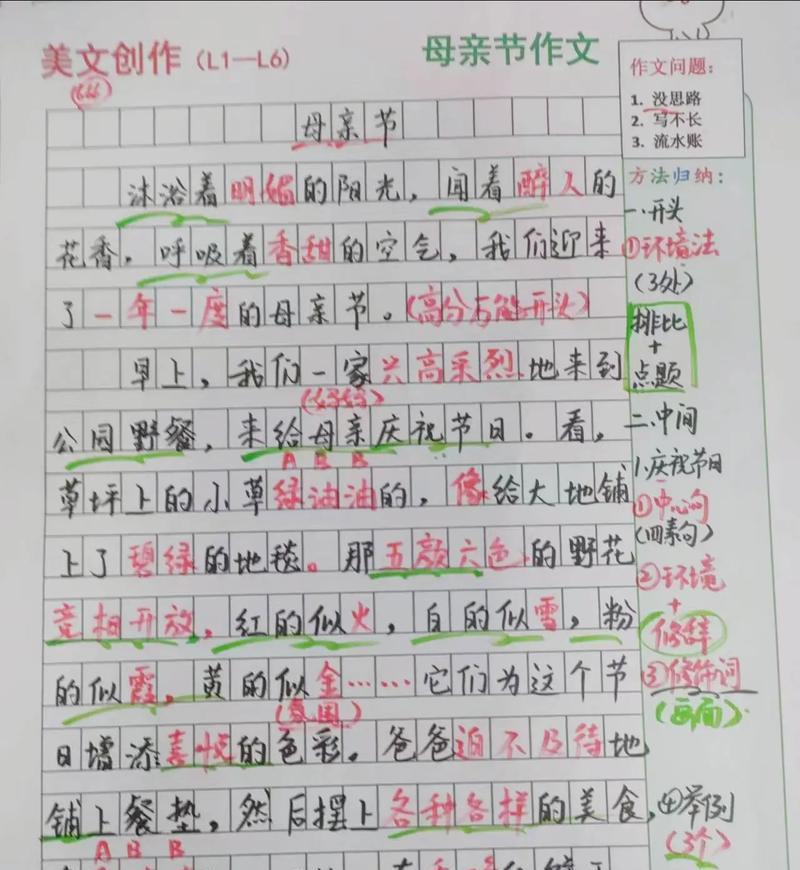 美文创作（L1—L6）
母亲节作文
(666)
母亲节
沐浴着明媚的阳光，闻着醉人的
花香，呼吸着香甜的空气，我们迎来
了一年一度的母亲节。(高分万能开头)
早上，我们一家兴高采烈地来到
公园野餐，来给母亲庆祝节日。看，
A B B
草坪上的小草绿油油的，像给大地铺
上了碧绿的地毯。那五颜六色的野花
竞相开放，红的似火，白的似雪，粉
的似霞，黄的似金……它们为这个节
日增添喜悦的色彩。爸爸迫不及待地
铺上餐垫，然后摆上各种各样的美食，
A B B
作文问题：
1. 没思路
2. 写不长
3. 流水账
方法归纳：
一、开头
①环境法
(3处)
排比
+
点题
二、中间
1.庆祝节日
①中心句
(四素句)
②环境
+
修辞
③修饰词
(画面)
④举例
(3个)